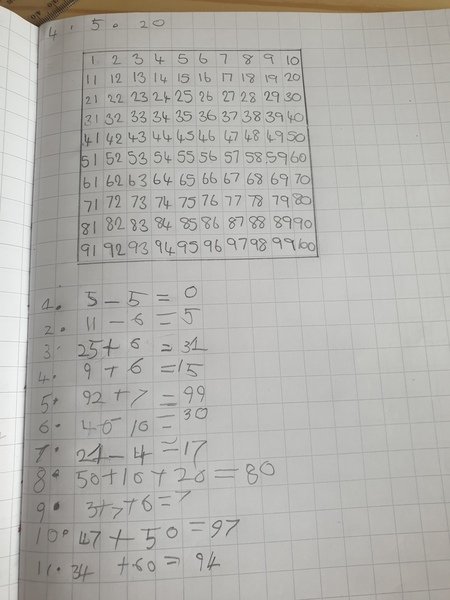 4. 5. 20
1 2 3 4 5 6 7 8 9 10
11 12 13 14 15 16 17 18 19 20
21 22 23 24 25 26 27 28 29 30
31 32 33 34 35 36 37 38 39 40
41 42 43 44 45 46 47 48 49 50
51 52 53 54 55 56 57 58 59 60
61 62 63 64 65 66 67 68 69 70
71 72 73 74 75 76 77 78 79 80
81 82 83 84 85 86 87 88 89 90
91 92 93 94 95 96 97 98 99 100
1. 5 - 5 = 0
2. 11 - 6 = 5
3. 25 + 6 = 31
4. 9 + 6 = 15
5. 92 + 7 = 99
6. 40 10 = 30
7. 21 - 4 = 17
8. 50 + 10 + 20 = 80
9. 3 + + 6 =
10. 47 + 50 = 97
11. 34 + 60 = 94